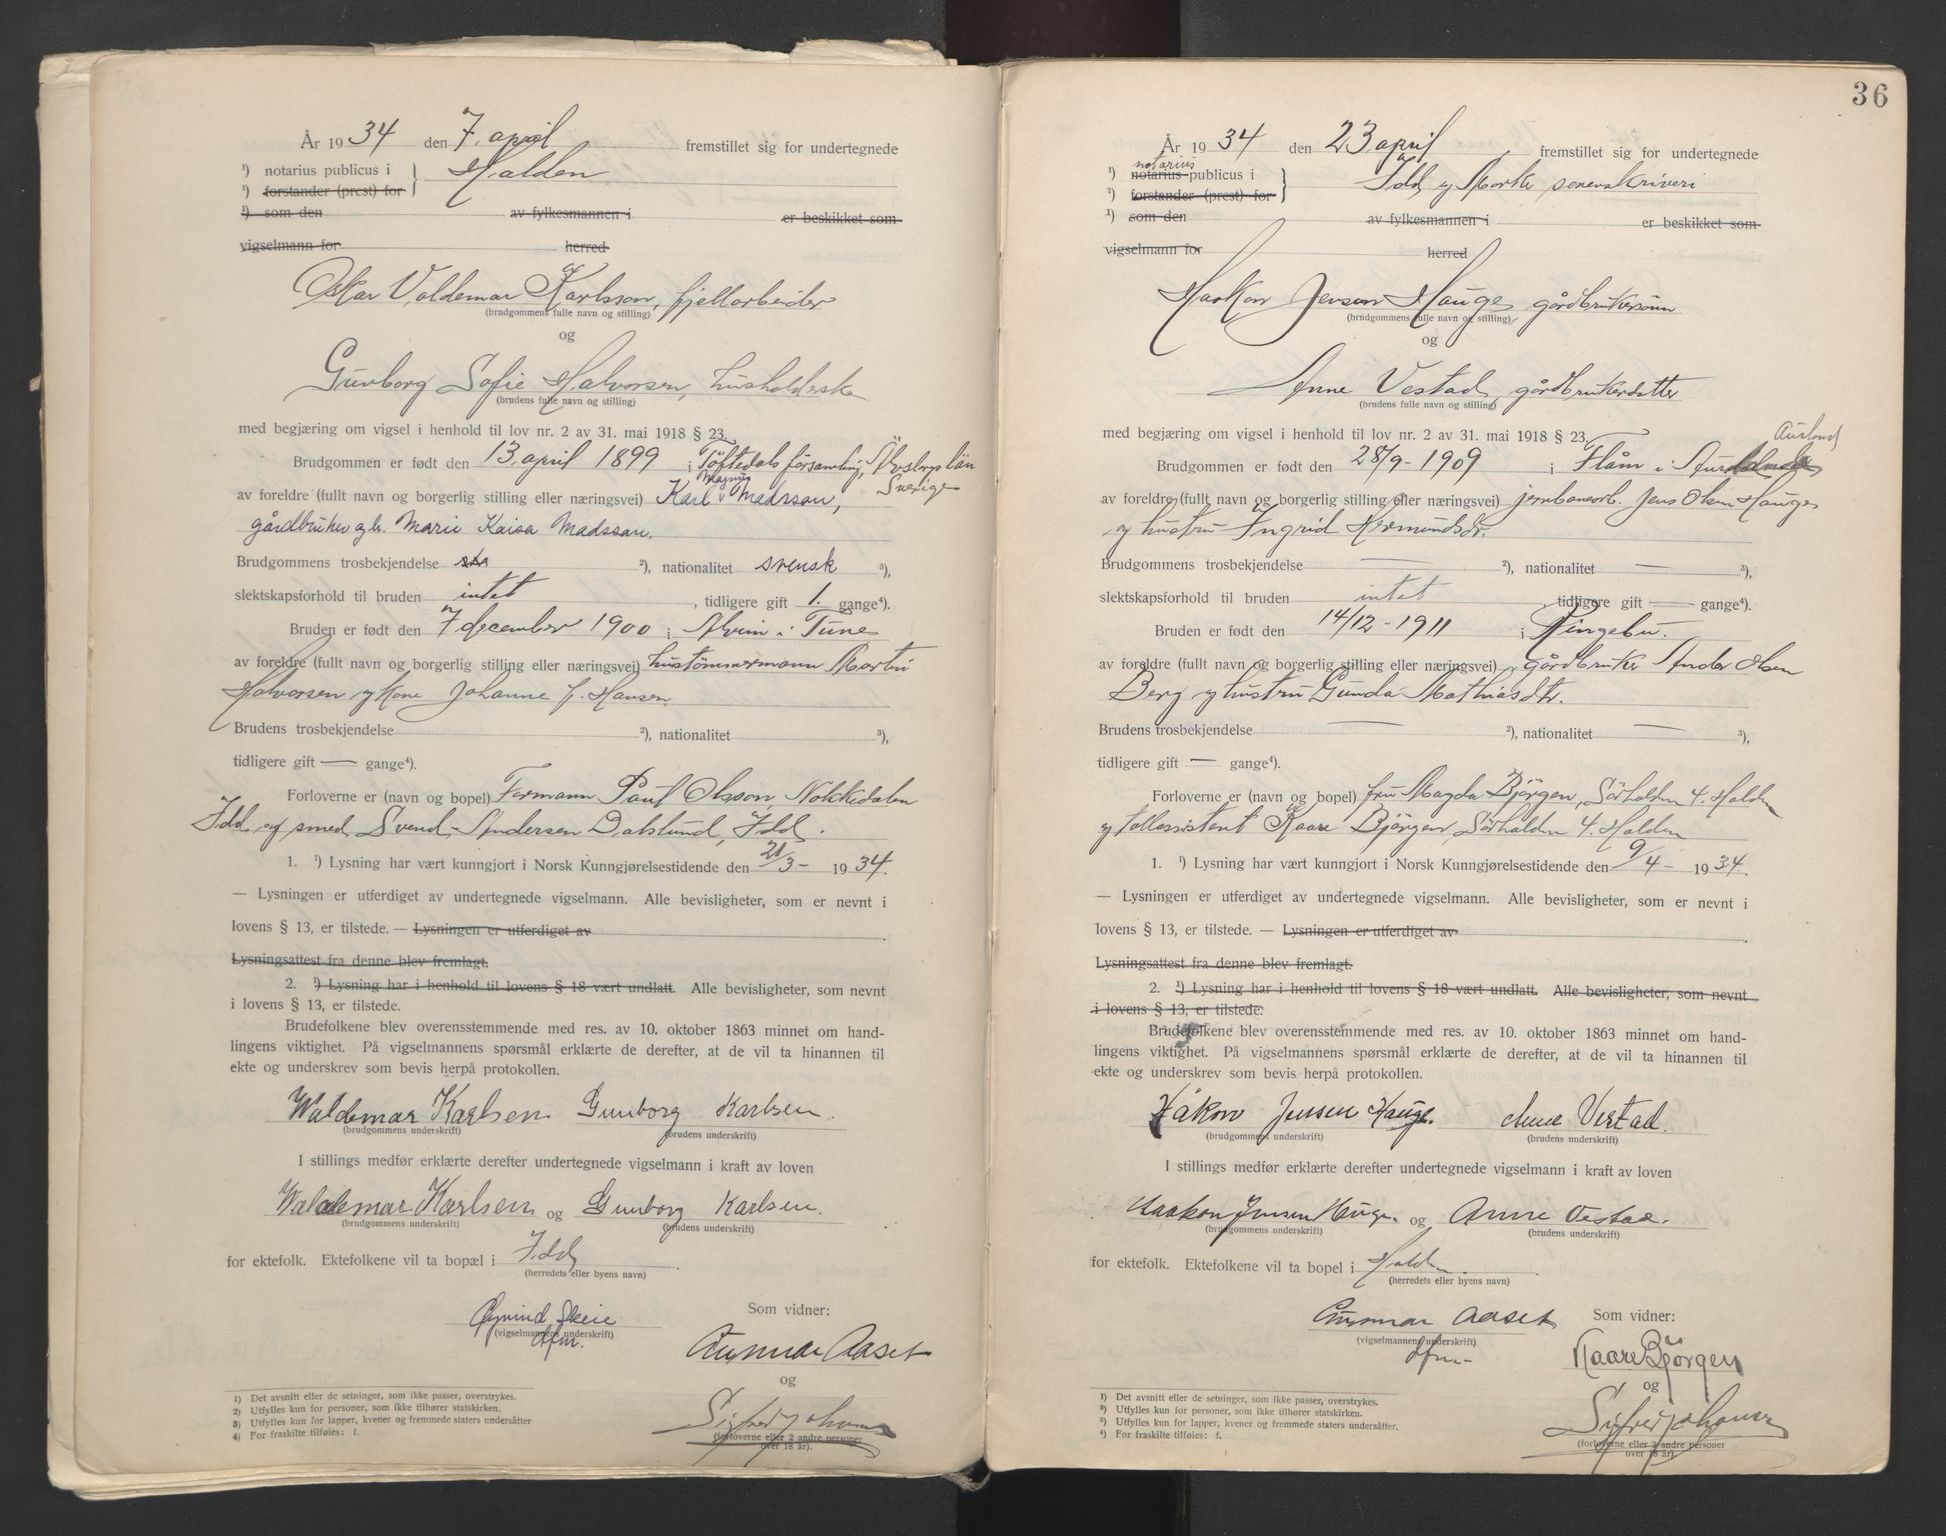 År 1934 den 7. april fremstillet sig for undertegnede
¹) notarius publicus i } Halden
¹) forstander (prest) for
¹) som den av fylkesmannen i er beskikket som
vigselmann for herred
Oskar Valdemar Karlsson, fjellarbeider
(brudgommens fulle navn og stilling)
og
Gunborg Sofie Halvorsen, husholderske
(brudens fulle navn og stilling)
med begjæring om vigsel i henhold til lov nr. 2 av 31. mai 1918 § 23.
Brudgommen er født den 13. april 1899 i Töftedals församling, Älvsborgs län
Sverige
av foreldre (fullt navn og borgerlig stilling eller næringsvei) Karl Magnus Madsson,
gårdbruker og h. Marie Kaisa Madssan.
Brudgommens trosbekjendelse ²), nationalitet svensk ³),
slektskapsforhold til bruden intet, tidligere gift 1. gange⁴).
Bruden er født den 7 december 1900 i Alvim i Tune
av foreldre (fullt navn og borgerlig stilling eller næringsvei) hustömmermann Martin
Halvorsen og kone Johanne f. Hansen
Brudens trosbekjendelse ²), nationalitet ³),
tidligere gift — gange⁴).
Forloverne er (navn og bopel) Formann Paul Olsson, Nokkedalen
Idd og smed Svend Andersen Dalslund, Idd.
1. ¹) Lysning har vært kunngjort i Norsk Kunngjørelsestidende den 21/3 – 1934.
— Lysningen er utferdiget av undertegnede vigselmann. Alle bevisligheter, som er nevnt i
lovens § 13, er tilstede. — Lysningen er utferdiget av
Lysningsattest fra denne blev fremlagt.
2. ¹) Lysning har i henhold til lovens § 18 vært undlatt. Alle bevisligheter, som nevnt
i lovens § 13, er tilstede.
Brudefolkene blev overensstemmende med res. av 10. oktober 1863 minnet om hand-
lingens viktighet. På vigselmannens spørsmål erklærte de derefter, at de vil ta hinannen til
ekte og underskrev som bevis herpå protokollen.
Waldemar Karlsen Gunborg Karlsen.
(brudgommens underskrift) (brudens underskrift)
I stillings medfør erklærte derefter undertegnede vigselmann i kraft av loven
Waldemar Karlsen og Gunborg Karlsen.
(brudgommens underskrift) (brudens underskrift)
for ektefolk. Ektefolkene vil ta bopæl i Idd.
(herredets eller byens navn)
Øyvind Skeie
(vigselmannens underskrift)
dfm.
Som vidner:
Gunnar Aaset
og
Sigfred Johansen
(forloverne eller 2 andre personer
over 18 år).
1) Det avsnitt eller de setninger, som ikke passer, overstrykes.
2) Utfylles kun for personer, som ikke tilhører statskirken.
3) Utfylles kun for lapper, kvener og fremmede staters undersåtter
4) For fraskilte tilføies: f.
36
År 1934 den 23 april fremstillet sig for undertegnede
notarius
¹) notarius publicus i } Idd og Marker sorenskriveri
¹) forstander (prest) for
¹) som den av fylkesmannen i er beskikket som
vigselmann for herred
Haakon Jensen Hauge, gårdbrukersønn
(brudgommens fulle navn og stilling)
og
Anne Vestad, gårdbrukerdatter
(brudens fulle navn og stilling)
med begjæring om vigsel i henhold til lov nr. 2 av 31. mai 1918 § 23.
Aurland
Brudgommen er født den 28/9 - 1909 i Flåm i
av foreldre (fullt navn og borgerlig stilling eller næringsvei) jernbanearb. Jens Olsen Hauge
og hustru Ingrid Hermundsdr.
Brudgommens trosbekjendelse — ²), nationalitet — ³),
slektskapsforhold til bruden intet, tidligere gift — gange⁴).
Bruden er født den 14/12 - 1911 i Ringebu.
av foreldre (fullt navn og borgerlig stilling eller næringsvei) gårdbruker Anders Olsen
Berg og hustru Gunda Mathiasdtr.
Brudens trosbekjendelse — ²), nationalitet — ³),
tidligere gift — gange⁴).
Forloverne er (navn og bopel) fru Magda Bjørgen, Sørhalden 4. Halden
og tollassistent Kaare Bjørgen, Sørhalden 4. Halden
1. ¹) Lysning har vært kunngjort i Norsk Kunngjørelsestidende den 9/4 – 1934.
— Lysningen er utferdiget av undertegnede vigselmann. Alle bevisligheter, som er nevnt i
lovens § 13, er tilstede. — Lysningen er utferdiget av
Lysningsattest fra denne blev fremlagt.
2. ¹) Lysning har i henhold til lovens § 18 vært undlatt. Alle bevisligheter, som nevnt
i lovens § 13, er tilstede.
Brudefolkene blev overensstemmende med res. av 10. oktober 1863 minnet om hand-
lingens viktighet. På vigselmannens spørsmål erklærte de derefter, at de vil ta hinannen til
ekte og underskrev som bevis herpå protokollen.
Håkon Jensen Hauge. Anne Vestad.
(brudgommens underskrift) (brudens underskrift)
I stillings medfør erklærte derefter undertegnede vigselmann i kraft av loven
Haakon Jensen Hauge. og Anne Vestad.
(brudgommens underskrift) (brudens underskrift)
for ektefolk. Ektefolkene vil ta bopel i Halden.
(herredets eller byens navn)
Gunnar Aaset
(vigselmannens underskrift)
dfm.
Som vidner:
Kaare Bjørgen
og
Sigfred Johansen
(forloverne eller 2 andre personer
over 18 år).
1) Det avsnitt eller de setninger, som ikke passer, overstrykes.
2) Utfylles kun for personer, som ikke tilhører statskirken.
3) Utfylles kun for lapper, kvener og fremmede staters undersåtter.
4) For fraskilte tilføies: f.